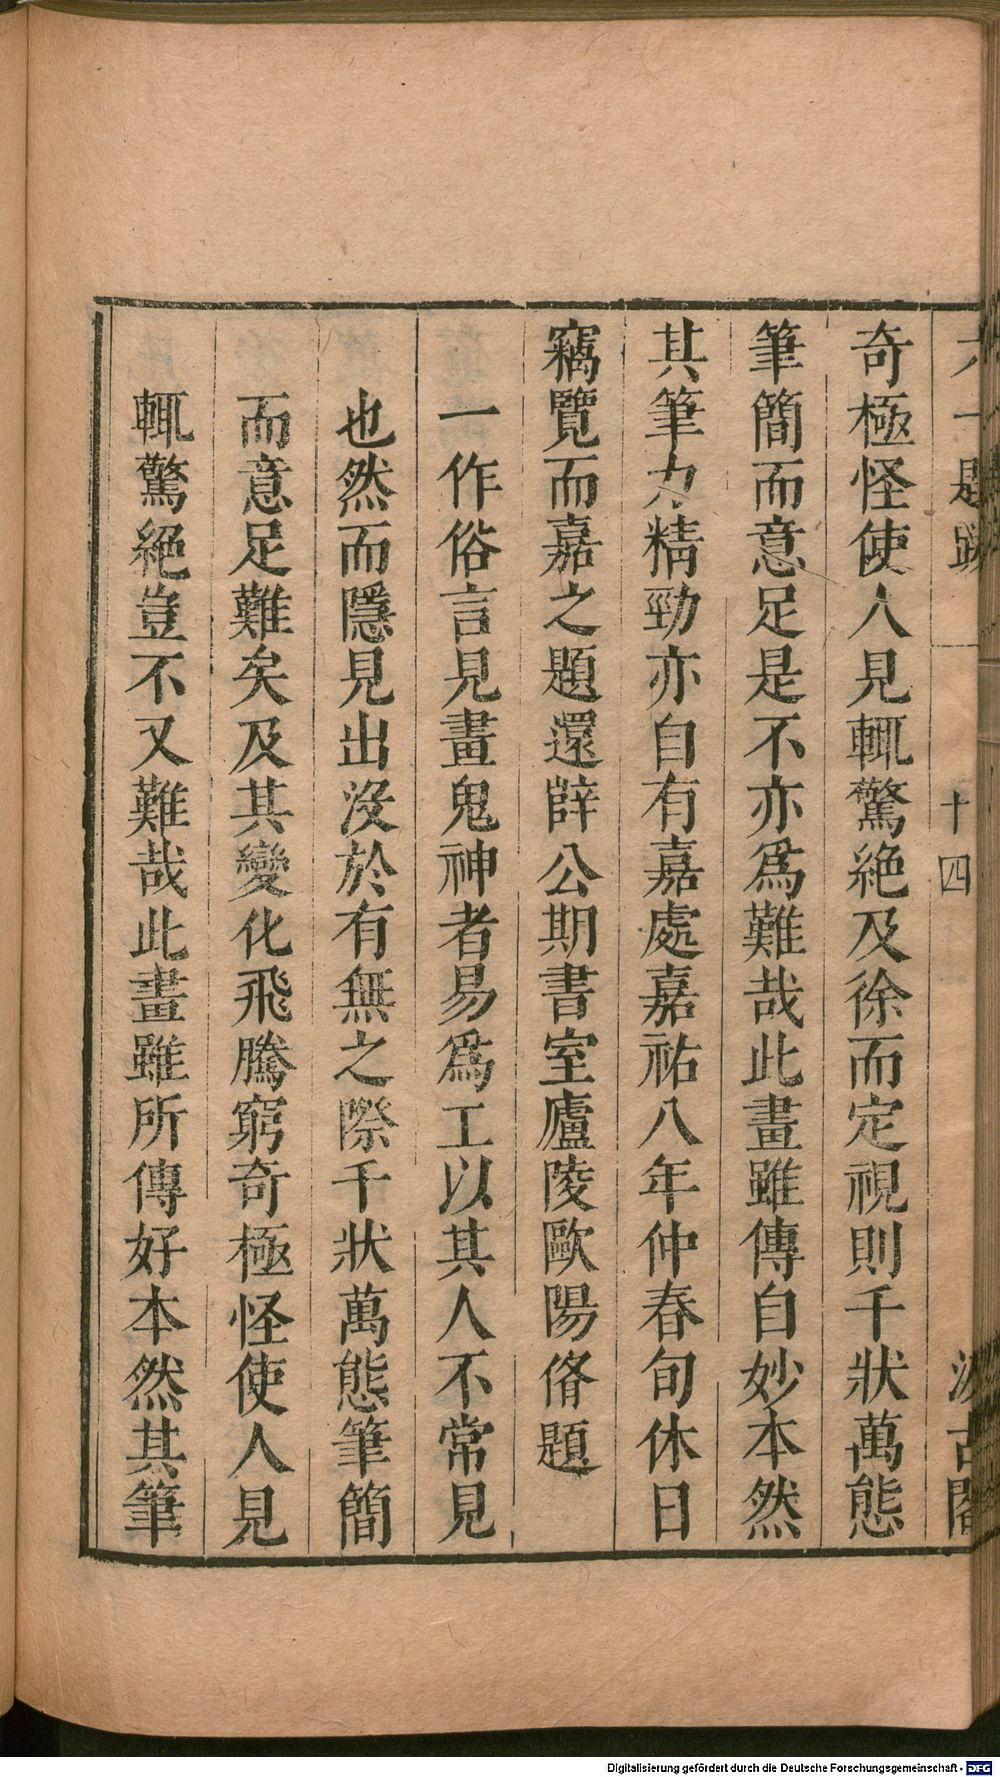 六一題跋
十四
汲古閣
奇極怪使人見輒驚絕及徐而定視則千狀萬態
筆簡而意足是不亦爲難哉此畫雖傳自妙本然
其筆力精勁亦自有嘉處嘉祐八年仲春旬休日
竊覽而嘉之題還薛公期書室廬陵歐陽脩題
一作俗言見畫鬼神者易爲工以其人不常見
也然而隱見出沒於有無之際千狀萬態筆簡
而意足難矣及其變化飛騰窮奇極怪使人見
輒驚絕豈不又難哉此畫雖所傳好本然其筆
Digitalisierung gefördert durch die Deutsche Forschungsgemeinschaft - DFG